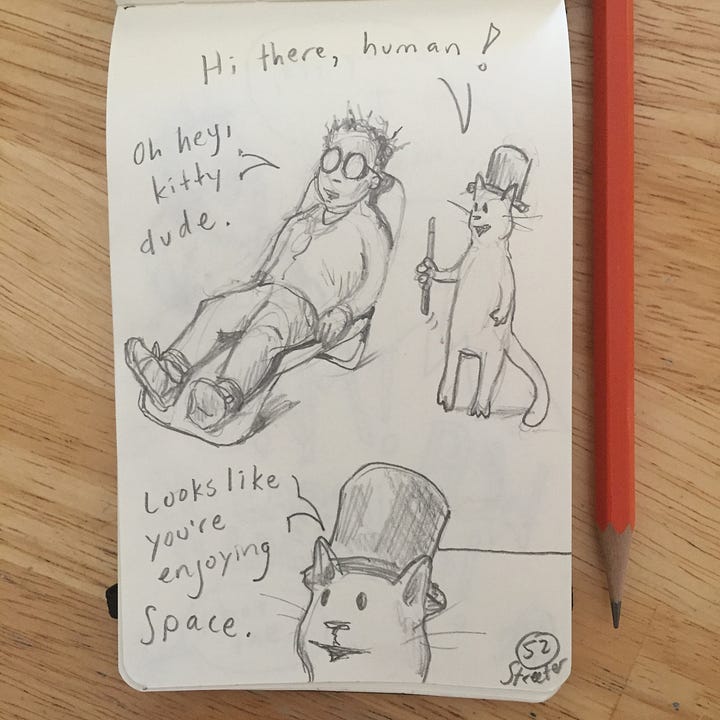 Hi there, human!
Oh hey,
kitty
dude.
Looks like
you're
enjoying
Space.
52
Streeter